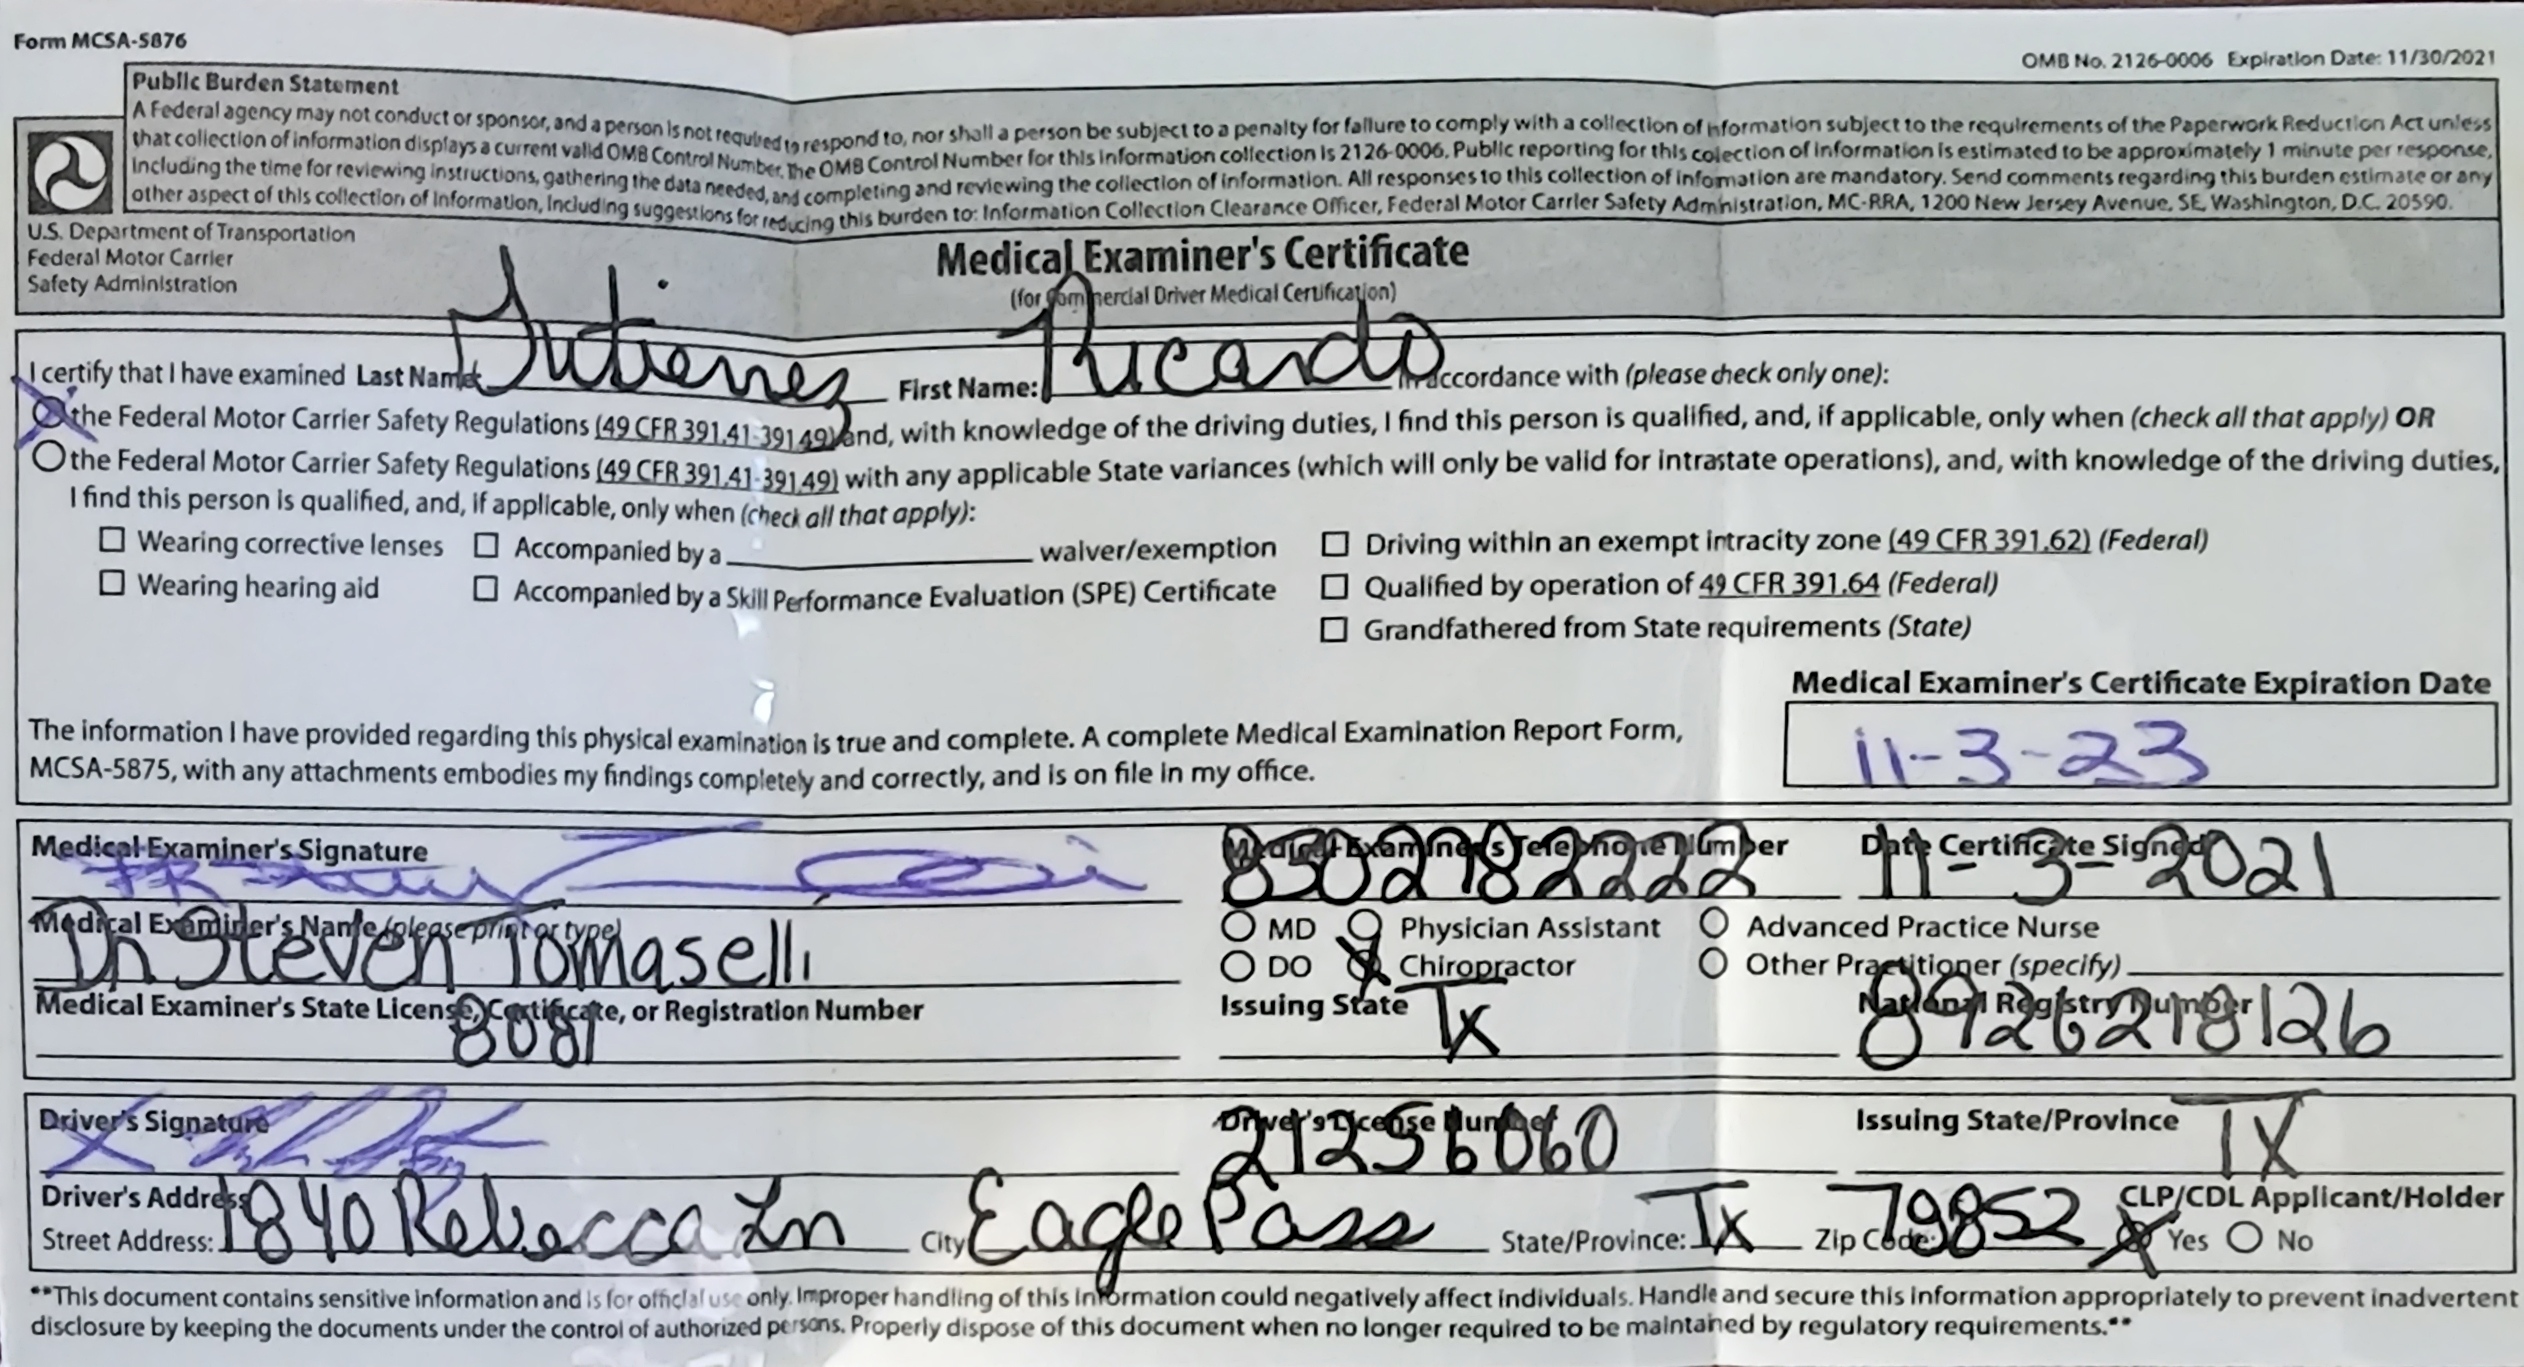 Form MCSA-5876
OMB No. 2126-0006 Expiration Date: 11/30/2021
Public Burden Statement
A Federal agency may not conduct or sponsor, and a person is not required to respond to, nor shall a person be subject to a penalty for failure to comply with a collection of information subject to the requirements of the Paperwork Reduction Act unless
that collection of information displays a current valid OMB Control Number. The OMB Control Number for this information collection is 2126-0006. Public reporting for this colection of information is estimated to be approximately 1 minute per response,
including the time for reviewing instructions, gathering the data needed, and completing and reviewing the collection of information. All responses to this collection of infomation are mandatory. Send comments regarding this burden estimate or any
other aspect of this collection of information, including suggestions for reducing this burden to: Information Collection Clearance Officer, Federal Motor Carrier Safety Administration, MC-RRA, 1200 New Jersey Avenue, SE, Washington, D.C. 20590.
U.S. Department of Transportation
Federal Motor Carrier
Safety Administration
Medical Examiner's Certificate
(for Commercial Driver Medical Certification)
I certify that I have examined Last Name: Gutierrez First Name: Ricardo in accordance with (please check only one):
the Federal Motor Carrier Safety Regulations (49 CFR 391.41-391.49) and, with knowledge of the driving duties, I find this person is qualified, and, if applicable, only when (check all that apply) OR
the Federal Motor Carrier Safety Regulations (49 CFR 391.41-391.49) with any applicable State variances (which will only be valid for intrastate operations), and, with knowledge of the driving duties,
I find this person is qualified, and, if applicable, only when (check all that apply):
Wearing corrective lenses Accompanied by a waiver/exemption Driving within an exempt intracity zone (49 CFR 391.62) (Federal)
Wearing hearing aid Accompanied by a Skill Performance Evaluation (SPE) Certificate Qualified by operation of 49 CFR 391.64 (Federal)
Grandfathered from State requirements (State)
Medical Examiner's Certificate Expiration Date
11-3-23
The information I have provided regarding this physical examination is true and complete. A complete Medical Examination Report Form,
MCSA-5875, with any attachments embodies my findings completely and correctly, and is on file in my office.
Medical Examiner's Signature Medical Examiner's Telephone Number Date Certificate Signed
8302982222 11-3-2021
Medical Examiner's Name (please print or type) MD Physician Assistant Advanced Practice Nurse
Dr Steven Tomaselli DO Chiropractor Other Practitioner (specify)
Medical Examiner's State License, Certificate, or Registration Number Issuing State National Registry Number
8081 Tx 8926218126
Driver's Signature Driver's License Number Issuing State/Province TX
21256060
Driver's Address CLP/CDL Applicant/Holder
Street Address: 1840 Rebecca Ln City Eagle Pass State/Province: Tx Zip Code: 79852 Yes No
**This document contains sensitive information and is for official use only. Improper handling of this information could negatively affect individuals. Handle and secure this information appropriately to prevent inadvertent
disclosure by keeping the documents under the control of authorized persons. Properly dispose of this document when no longer required to be maintained by regulatory requirements.**